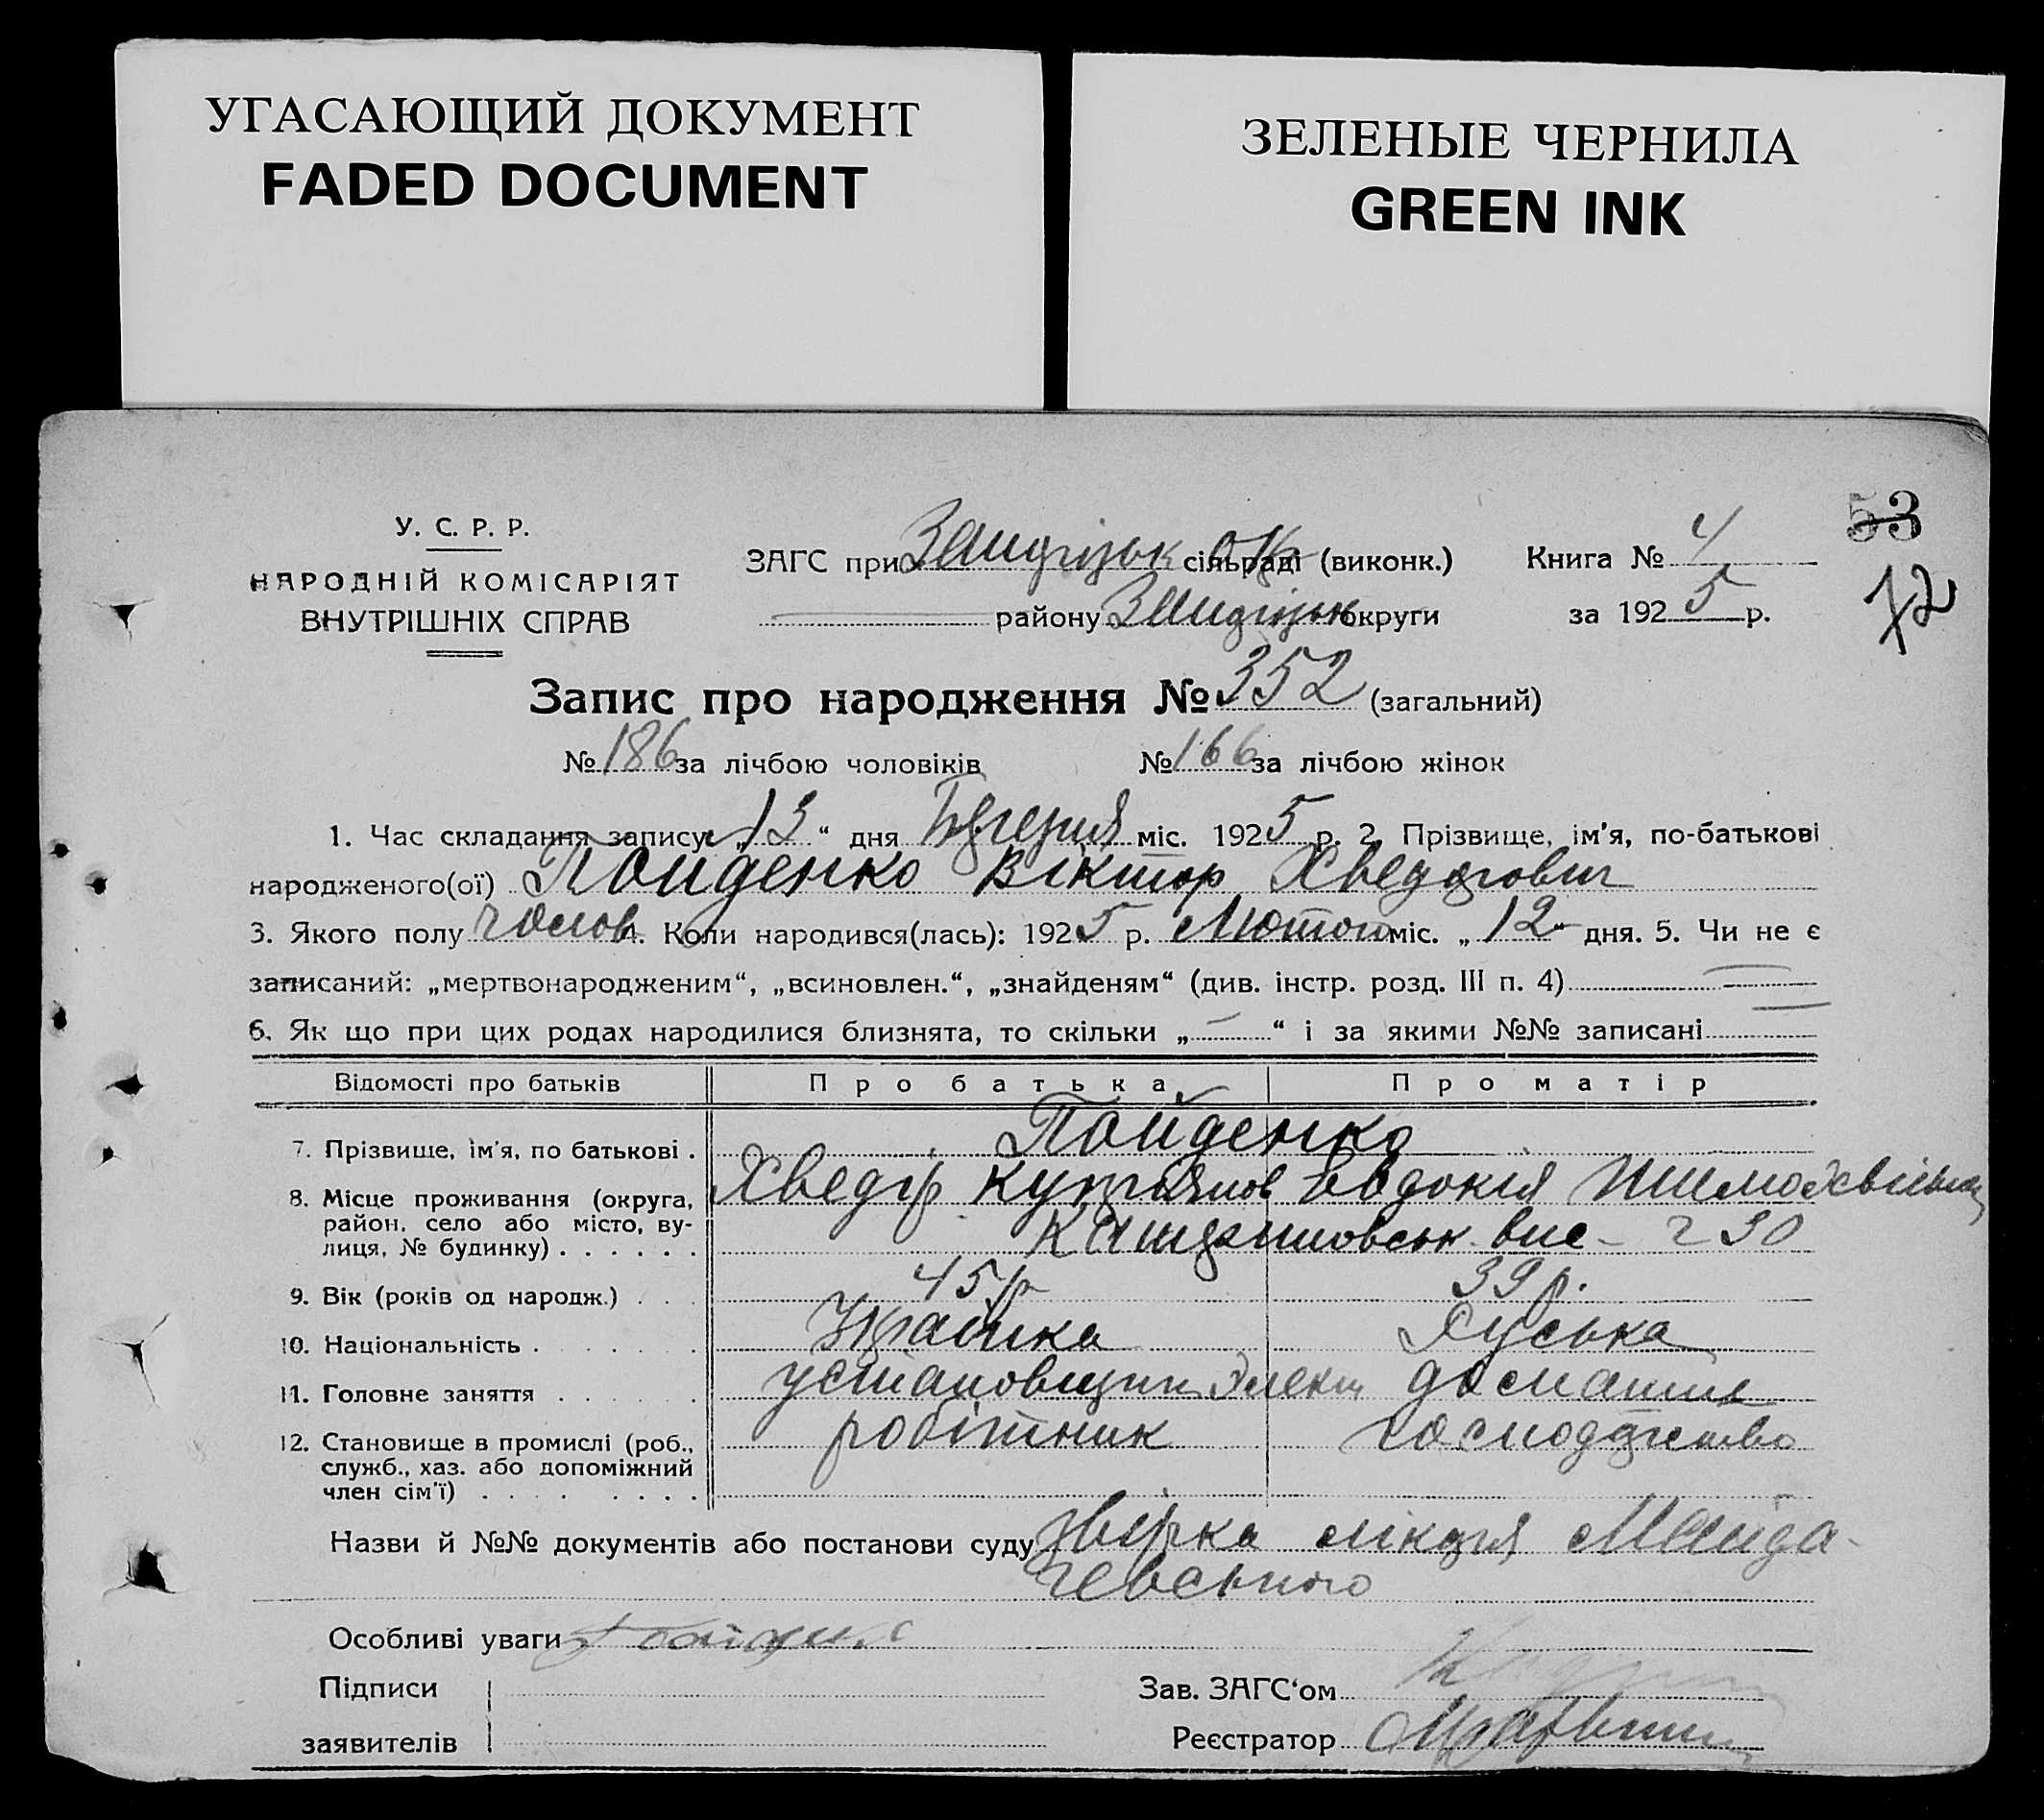 УГАСАЮЩИЙ ДОКУМЕНТ
FADED DOCUMENT
ЗЕЛЕНЫЕ ЧЕРНИЛА
GREEN INK
53
72
У. С. Р. Р.
НАРОДНІЙ КОМІСАРІЯТ
ВНУТРІШНІХ СПРАВ
ЗАГС при сільраді (виконк.) Книга № 4
району округи за 1925 р.
Запис про народження № 352 (загальний)
№ 186 за лічбою чоловіків № 166 за лічбою жінок
1. Час складання запису „13“ дня Березня міс. 1925 р. 2. Прізвище, ім'я, по-батькові
народженого(ої) Пойденко Віктор Хведорович
3. Якого полу чолов. 4. Коли народився(лась): 1925 р. Лютого міс. „12“ дня. 5. Чи не є
записаний: „мертвонародженим“, „всиновлен.“, „знайденям“ (див. інстр. розд. III п. 4)
6. Як що при цих родах народилися близнята, то скільки „—“ і за якими №№ записані
Відомості про батьків Про батька Про матір
7. Прізвище, ім'я, по батькові . Пойденко
Хведір Евдокія
8. Місце проживання (округа, район, село або місто, вулиця, № будинку) . . . . . . вис. ч 30
9. Вік (років од народж.) . . . 45 р 39 р.
10. Національність . Українка Руська
11. Головне заняття . установщик Электр домашнє
12. Становище в промислі (роб., служб., хаз. або допоміжний член сім'ї) . . . . робітник господарство
Назви й №№ документів або постанови суду довірка лікаря Майда-
чевського
Особливі уваги
Підписи
заявителів
Зав. ЗАГС'ом
Реєстратор